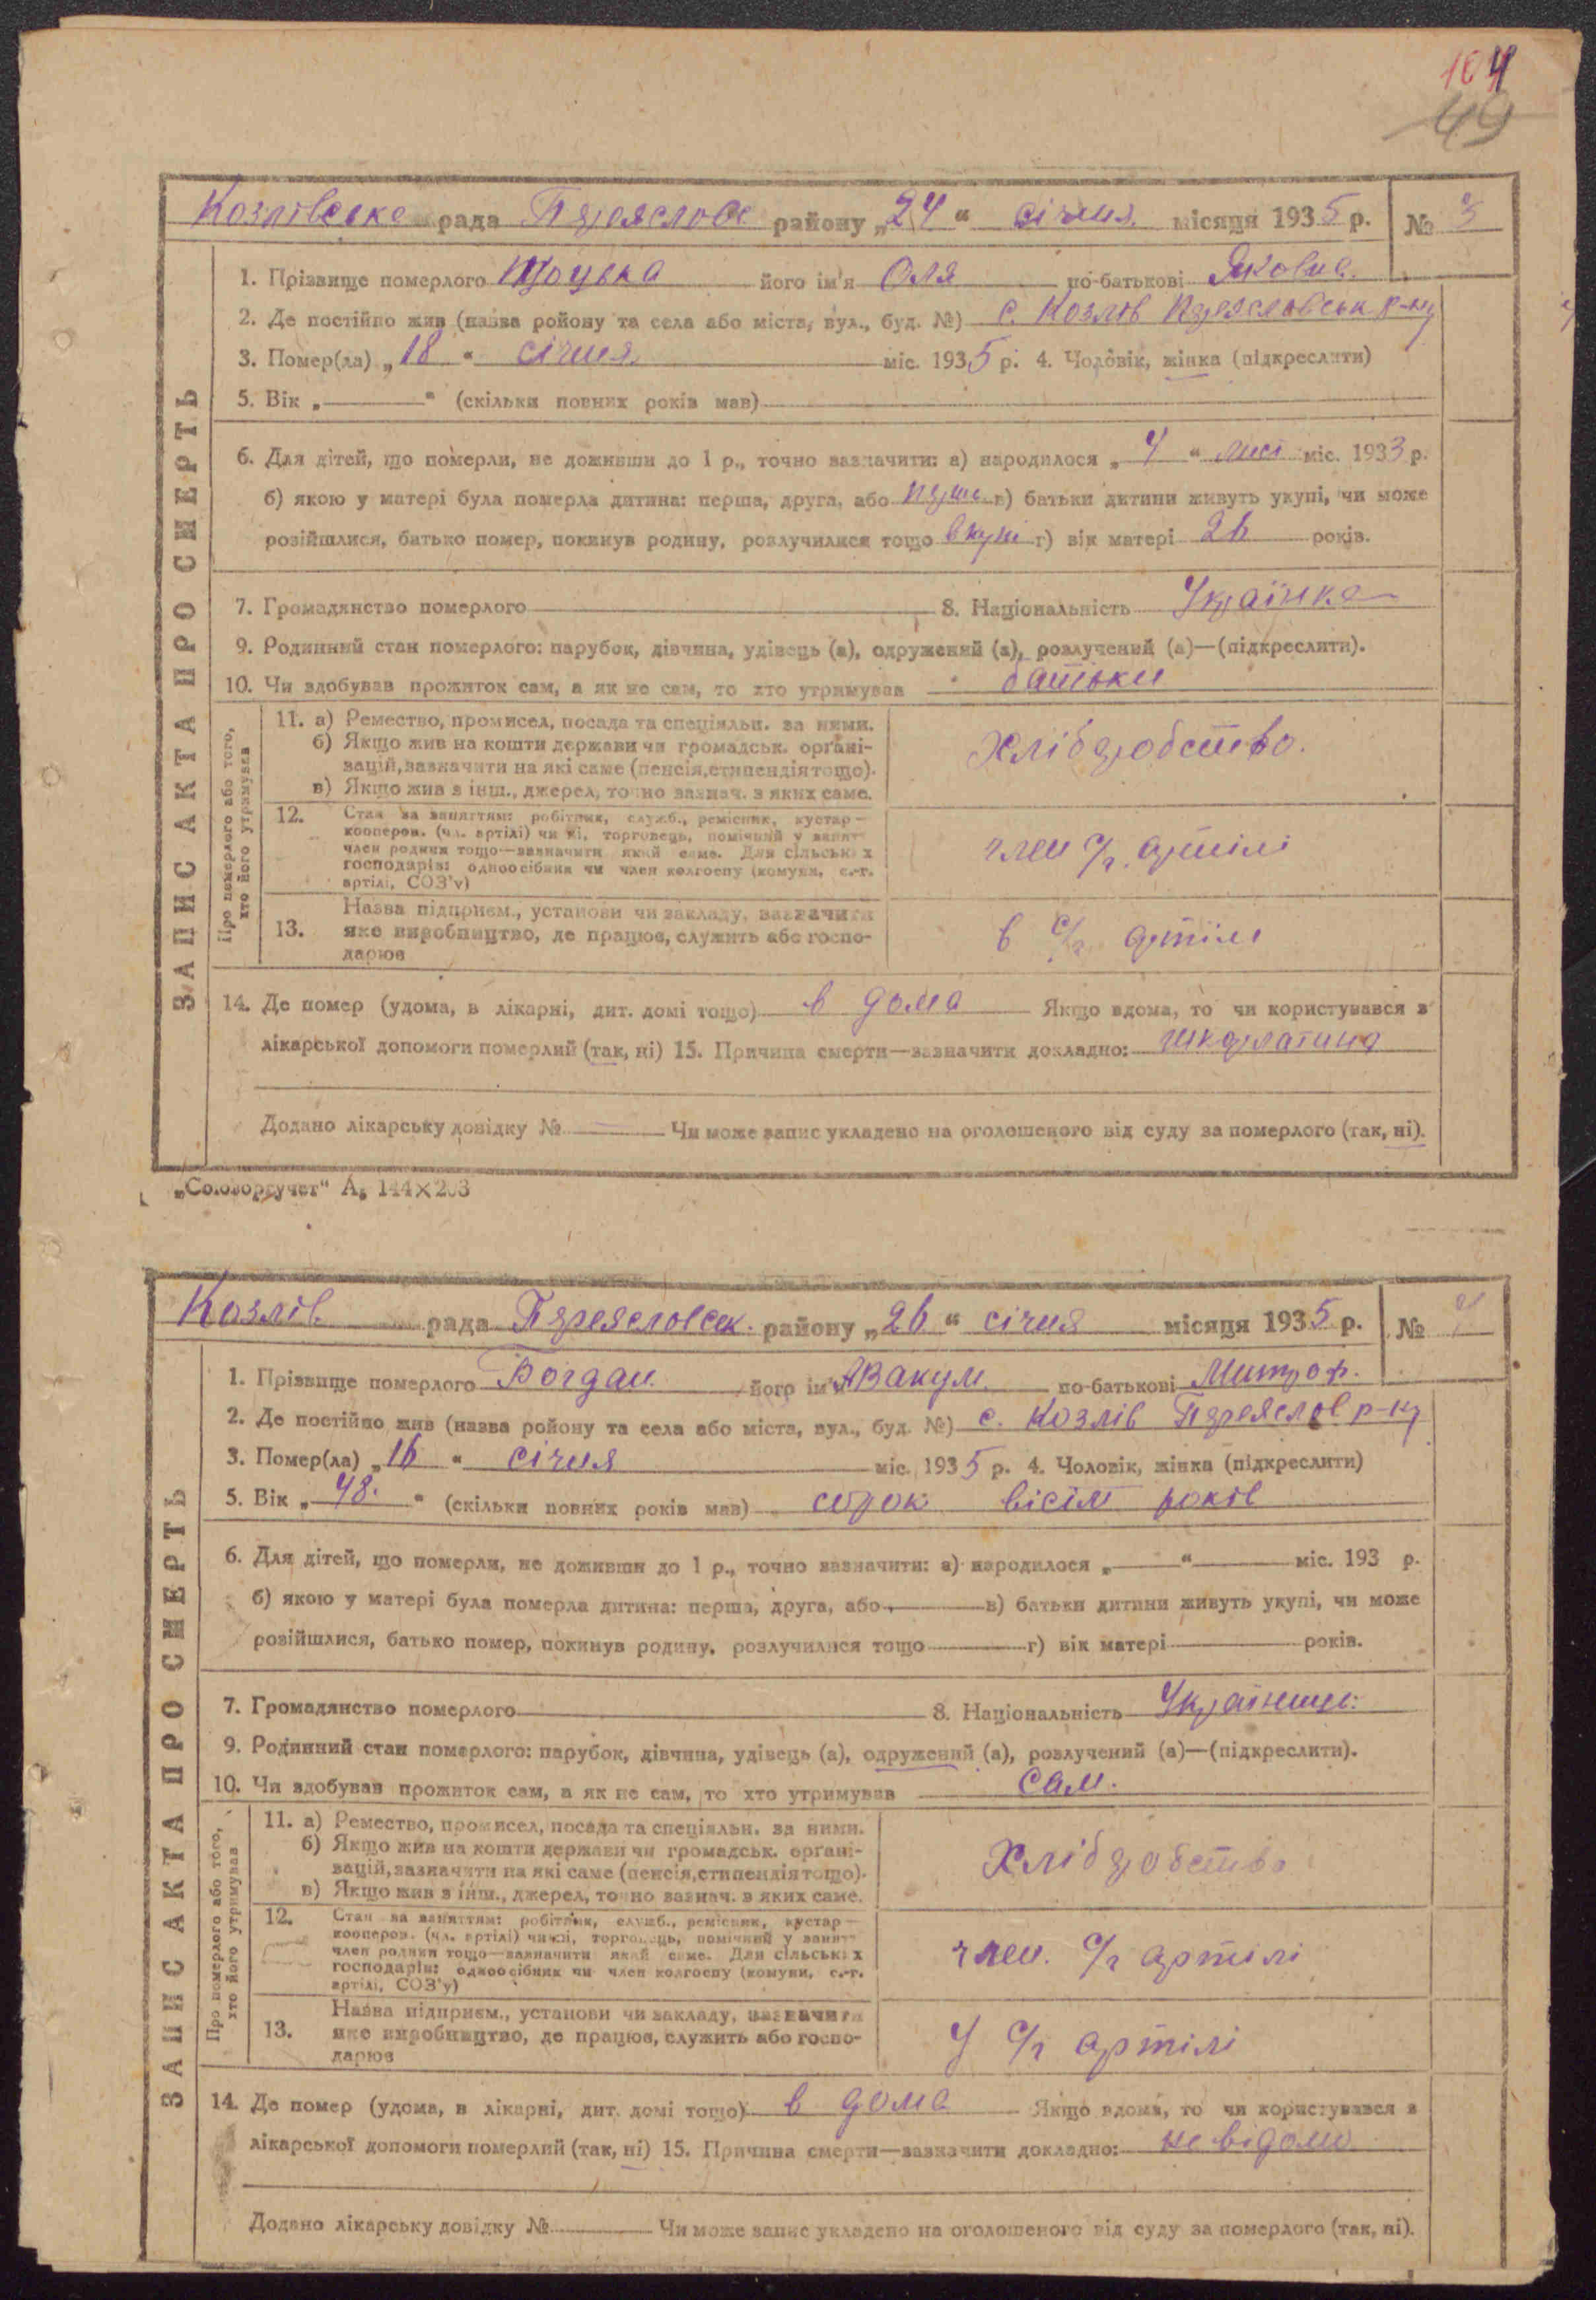 104
49
Козлівське рада Переяслове району „24“ січня місяця 1935 р. № 3
ЗАПИС АКТА ПРО СМЕРТЬ
1. Прізвище померлого Троцька його ім'я Оля по-батькові Яковна.
2. Де постійно жив (назва ройону та села або міста, вул., буд. №) с. Козлів Переяславськ р-ну
3. Помер(ла) „18“ січня міс. 1935 р. 4. Чоловік, жінка (підкреслити)
5. Вік „ “ (скільки повних років мав)
6. Для дітей, що померли, не доживши до 1 р., точно зазначити: а) народилося „4“ міс. 1933 р.
б) якою у матері була померла дитина: перша, друга, або перше в) батьки дитини живуть укупі, чи може
розійшлися, батько помер, покинув родину, розлучилися тощо вкупі г) вік матері 26 років.
7. Громадянство померлого 8. Національність Українка
9. Родинний стан померлого: парубок, дівчина, удівець (а), одружений (а), розлучений (а)—(підкреслити).
10. Чи здобував прожиток сам, а як не сам, то хто утримував батьки
Про померлого або того,
хто його утримував
11. а) Ремество, промисел, посада та спеціяльн. за ними.
б) Якщо жив на кошти держави чи громадськ. органі-
зацій, зазначити на які саме (пенсія, стипендія тощо).
в) Якщо жив з інш., джерел, точно зазнач. з яких саме.
Хліборобство.
12. Стан за заняттям: робітник, служб., ремісник, кустар—
кооперов. (чл. артілі) чи ні, торговець, помічний у занят-
член родини тощо—зазначити який саме. Для сільських
господарів: одноосібник чи член колгоспу (комуни, с.-г.
артілі, СОЗ'у)
член с/г. артілі
13. Назва підприєм., установи чи закладу, зазначити
яке виробництво, де працює, служить або госпо-
дарює
в с/г. артілі
14. Де помер (удома, в лікарні, дит. домі тощо) в дома Якщо вдома, то чи користувався з
лікарської допомоги померлий (так, ні) 15. Причина смерти—зазначити докладно: шкарлатина
Додано лікарську довідку № Чи може запис укладено на оголошеного від суду за померлого (так, ні).
„Союзоргучет“ А₅ 144×203
Козлів. рада Переясловськ. району „26“ січня місяця 1935 р. № 4
ЗАПИС АКТА ПРО СМЕРТЬ
1. Прізвище померлого Богдан. його ім'я Авакум. по-батькові Митроф.
2. Де постійно жив (назва ройону та села або міста, вул., буд. №) с. Козлів Переяслов р-ну
3. Помер(ла) „16“ січня міс. 1935 р. 4. Чоловік, жінка (підкреслити)
5. Вік „48.“ (скільки повних років мав) сорок вісім років
6. Для дітей, що померли, не доживши до 1 р., точно зазначити: а) народилося „ “ міс. 193 р.
б) якою у матері була померла дитина: перша, друга, або в) батьки дитини живуть укупі, чи може
розійшлися, батько помер, покинув родину, розлучилися тощо г) вік матері років.
7. Громадянство померлого 8. Національність Українець
9. Родинний стан померлого: парубок, дівчина, удівець (а), одружений (а), розлучений (а)—(підкреслити).
10. Чи здобував прожиток сам, а як не сам, то хто утримував сам.
Про померлого або того,
хто його утримував
11. а) Ремество, промисел, посада та спеціяльн. за ними.
б) Якщо жив на кошти держави чи громадськ. органі-
зацій, зазначити на які саме (пенсія, стипендія тощо).
в) Якщо жив з інш., джерел, точно зазнач. з яких саме.
Хліборобство
12. Стан за заняттям: робітник, служб., ремісник, кустар—
кооперов. (чл. артілі) чи ні, торговець, помічний у занят-
член родини тощо—зазначити який саме. Для сільських
господарів: одноосібник чи член колгоспу (комуни, с.-г.
артілі, СОЗ'у)
член. с/г артілі
13. Назва підприєм., установи чи закладу, зазначити
яке виробництво, де працює, служить або госпо-
дарює
У с/г артілі
14. Де помер (удома, в лікарні, дит. домі тощо) в дома Якщо вдома, то чи користувався з
лікарської допомоги померлий (так, ні) 15. Причина смерти—зазначити докладно: не відомо
Додано лікарську довідку № Чи може запис укладено на оголошеного від суду за померлого (так, ні).